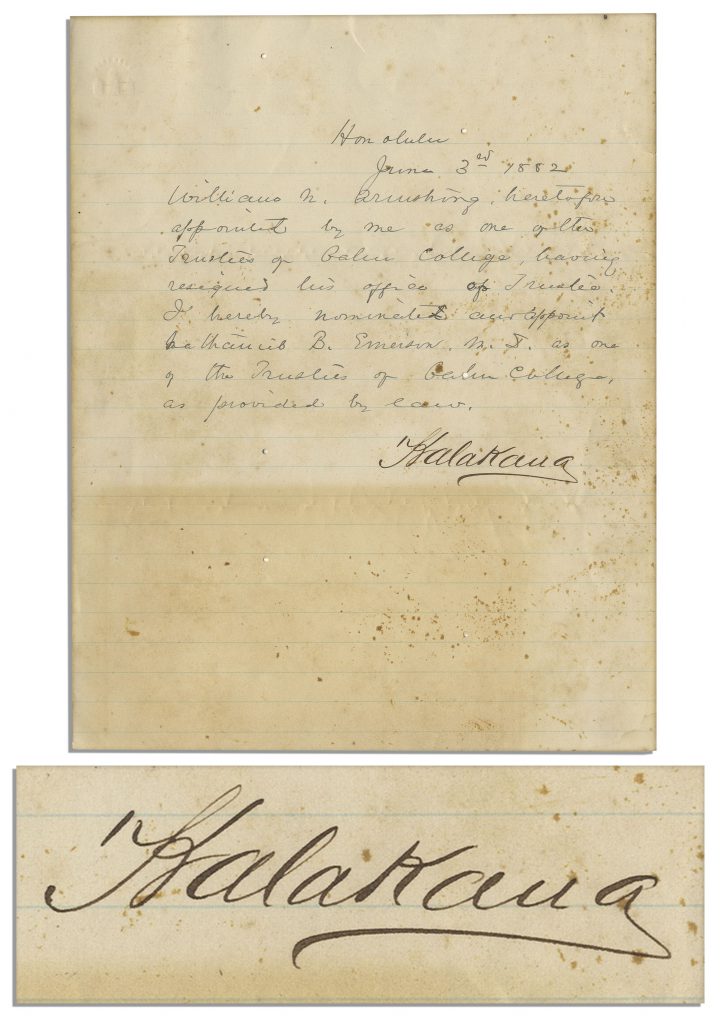 Honolulu
June 3rd 1882
William N. Armstrong, heretofore
appointed by me as one of the
Trustees of Oahu College, having
resigned his office of Trustee.
I hereby nominate and appoint
Nathaniel B. Emerson, M. D. as one
of the Trustees of Oahu College,
as provided by law.
Kalakaua
Kalakaua